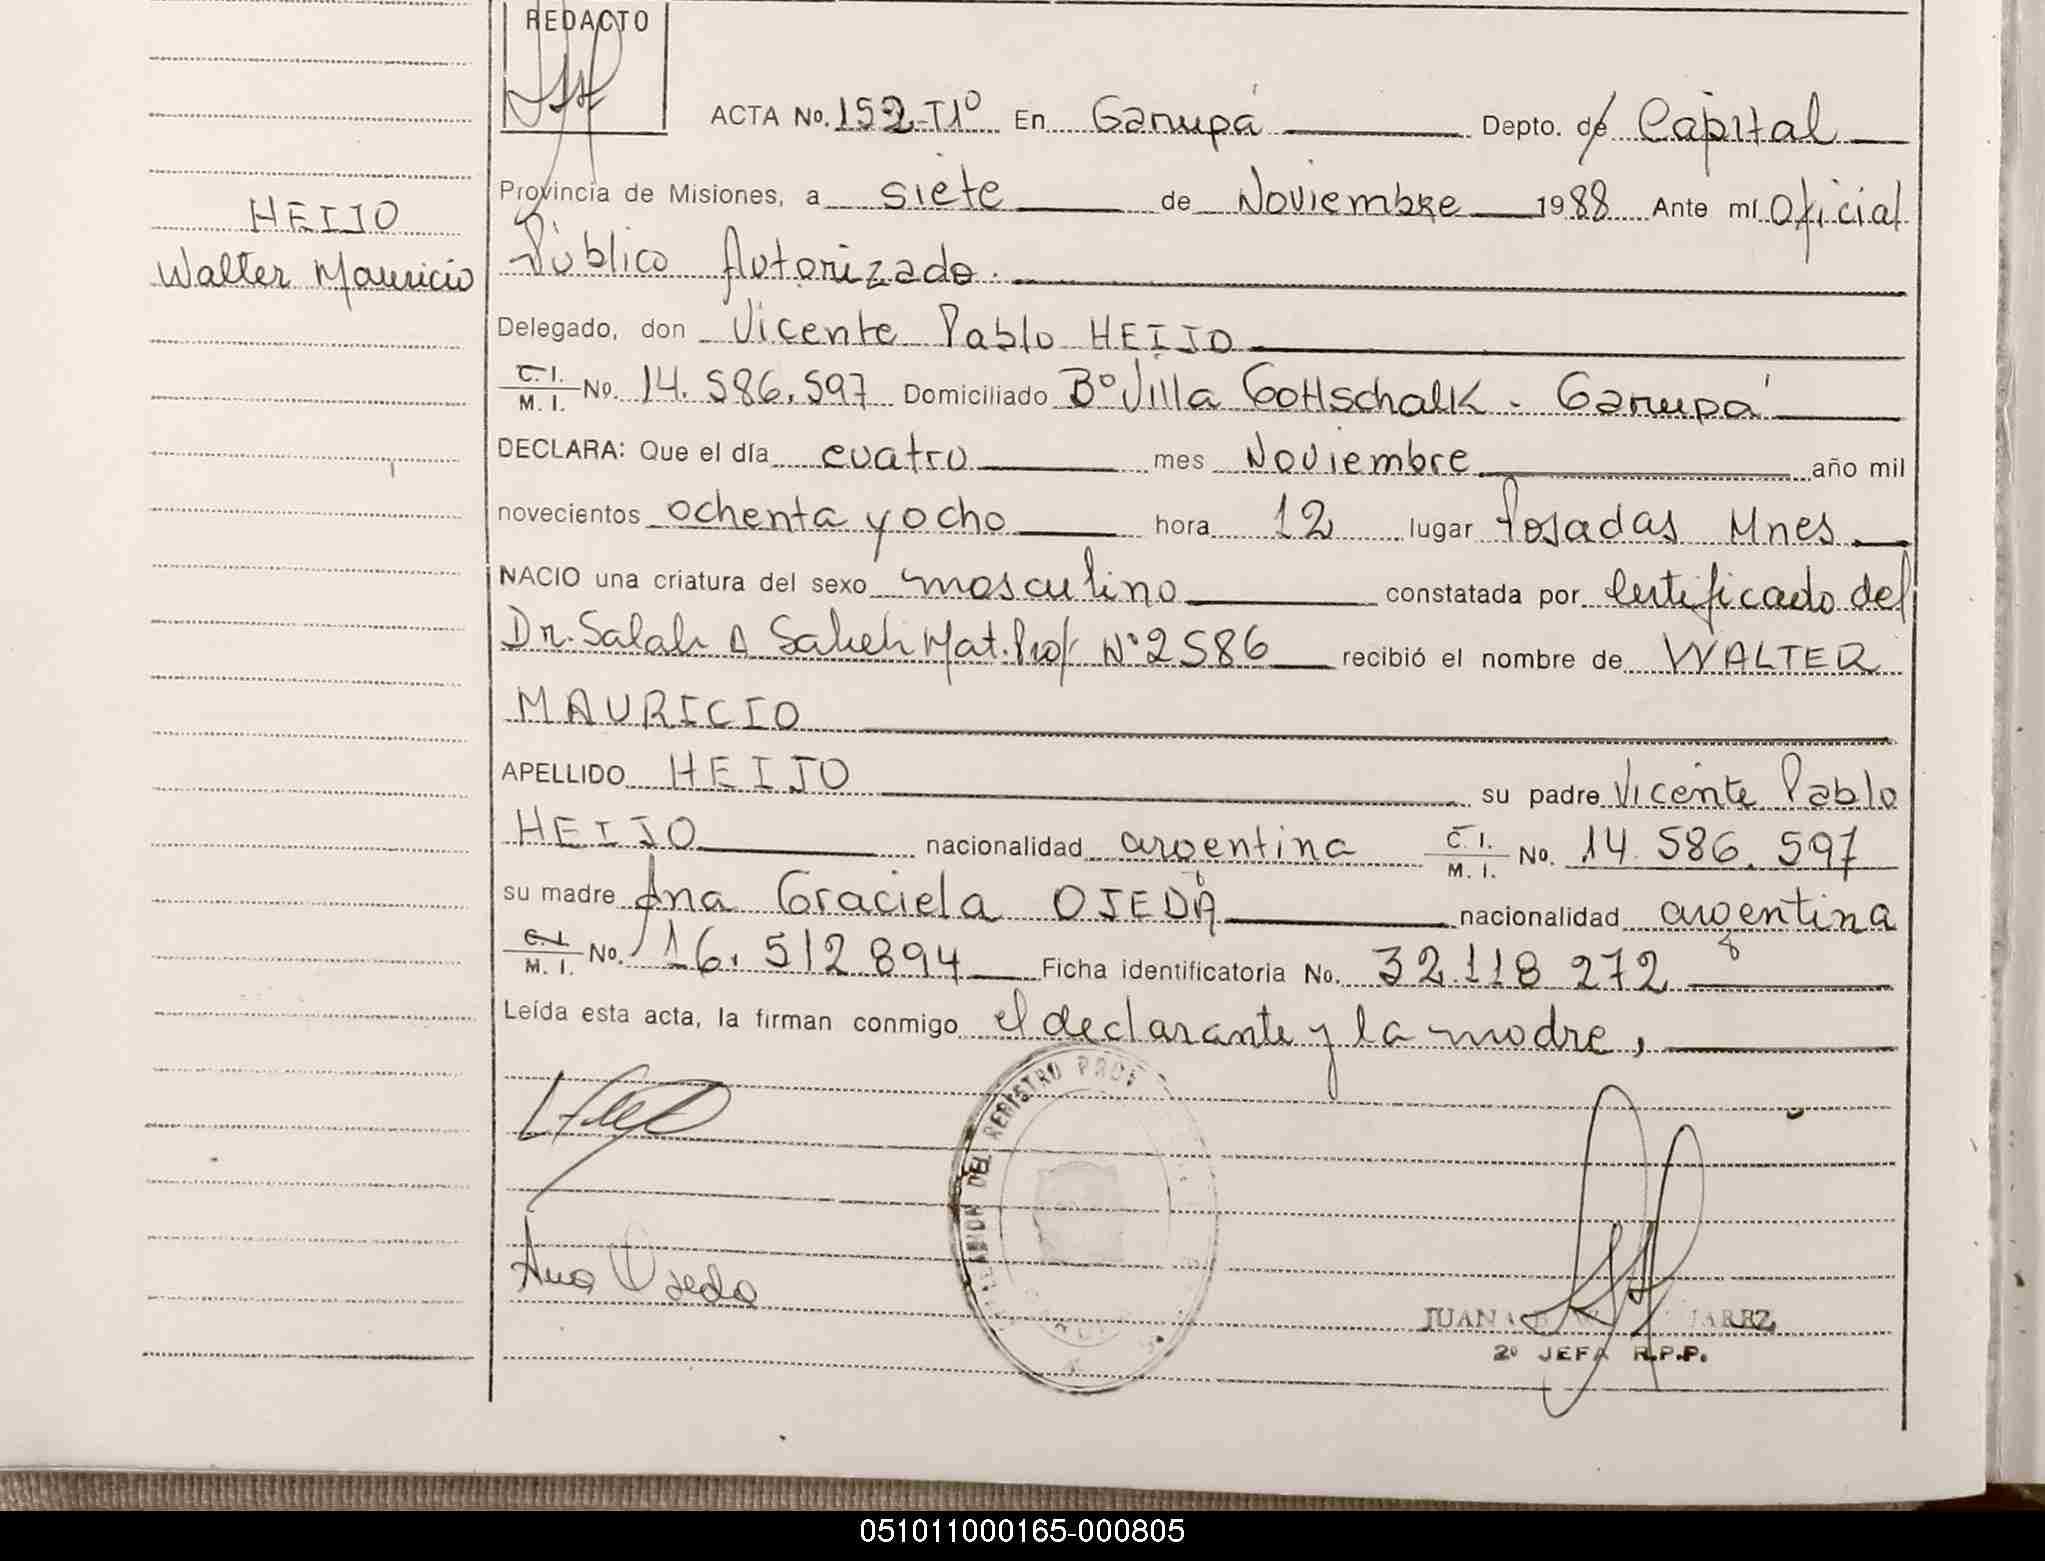 REDACTO
ACTA No. 152-T1º En Garupá Depto. de Capital
HEIJO
Walter Mauricio
Provincia de Misiones, a siete de Noviembre 1988 Ante mí Oficial
Público Autorizado.
Delegado, don Vicente Pablo HEIJO
C. I. / M. I. No. 14.586.597 Domiciliado Bº Villa Gottschalk - Garupá
DECLARA: Que el día cuatro mes Noviembre año mil
novecientos ochenta y ocho hora 12 lugar Posadas Mnes
NACIO una criatura del sexo masculino constatada por Certificado del
Dr. Salah A Saheh Mat. Prof Nº 2586 recibió el nombre de WALTER
MAURICIO
APELLIDO HEIJO su padre Vicente Pablo
HEIJO nacionalidad argentina C. I. / M. I. No. 14.586.597
su madre Ana Graciela OJEDA nacionalidad argentina
C. I. / M. I. No. 16.512894 Ficha identificatoria No. 32.118272
Leída esta acta, la firman conmigo el declarante y la madre,
DEL REGISTRO PROV
Ana Ojeda
JUANA
2º JEFA R.P.P.
051011000165-000805